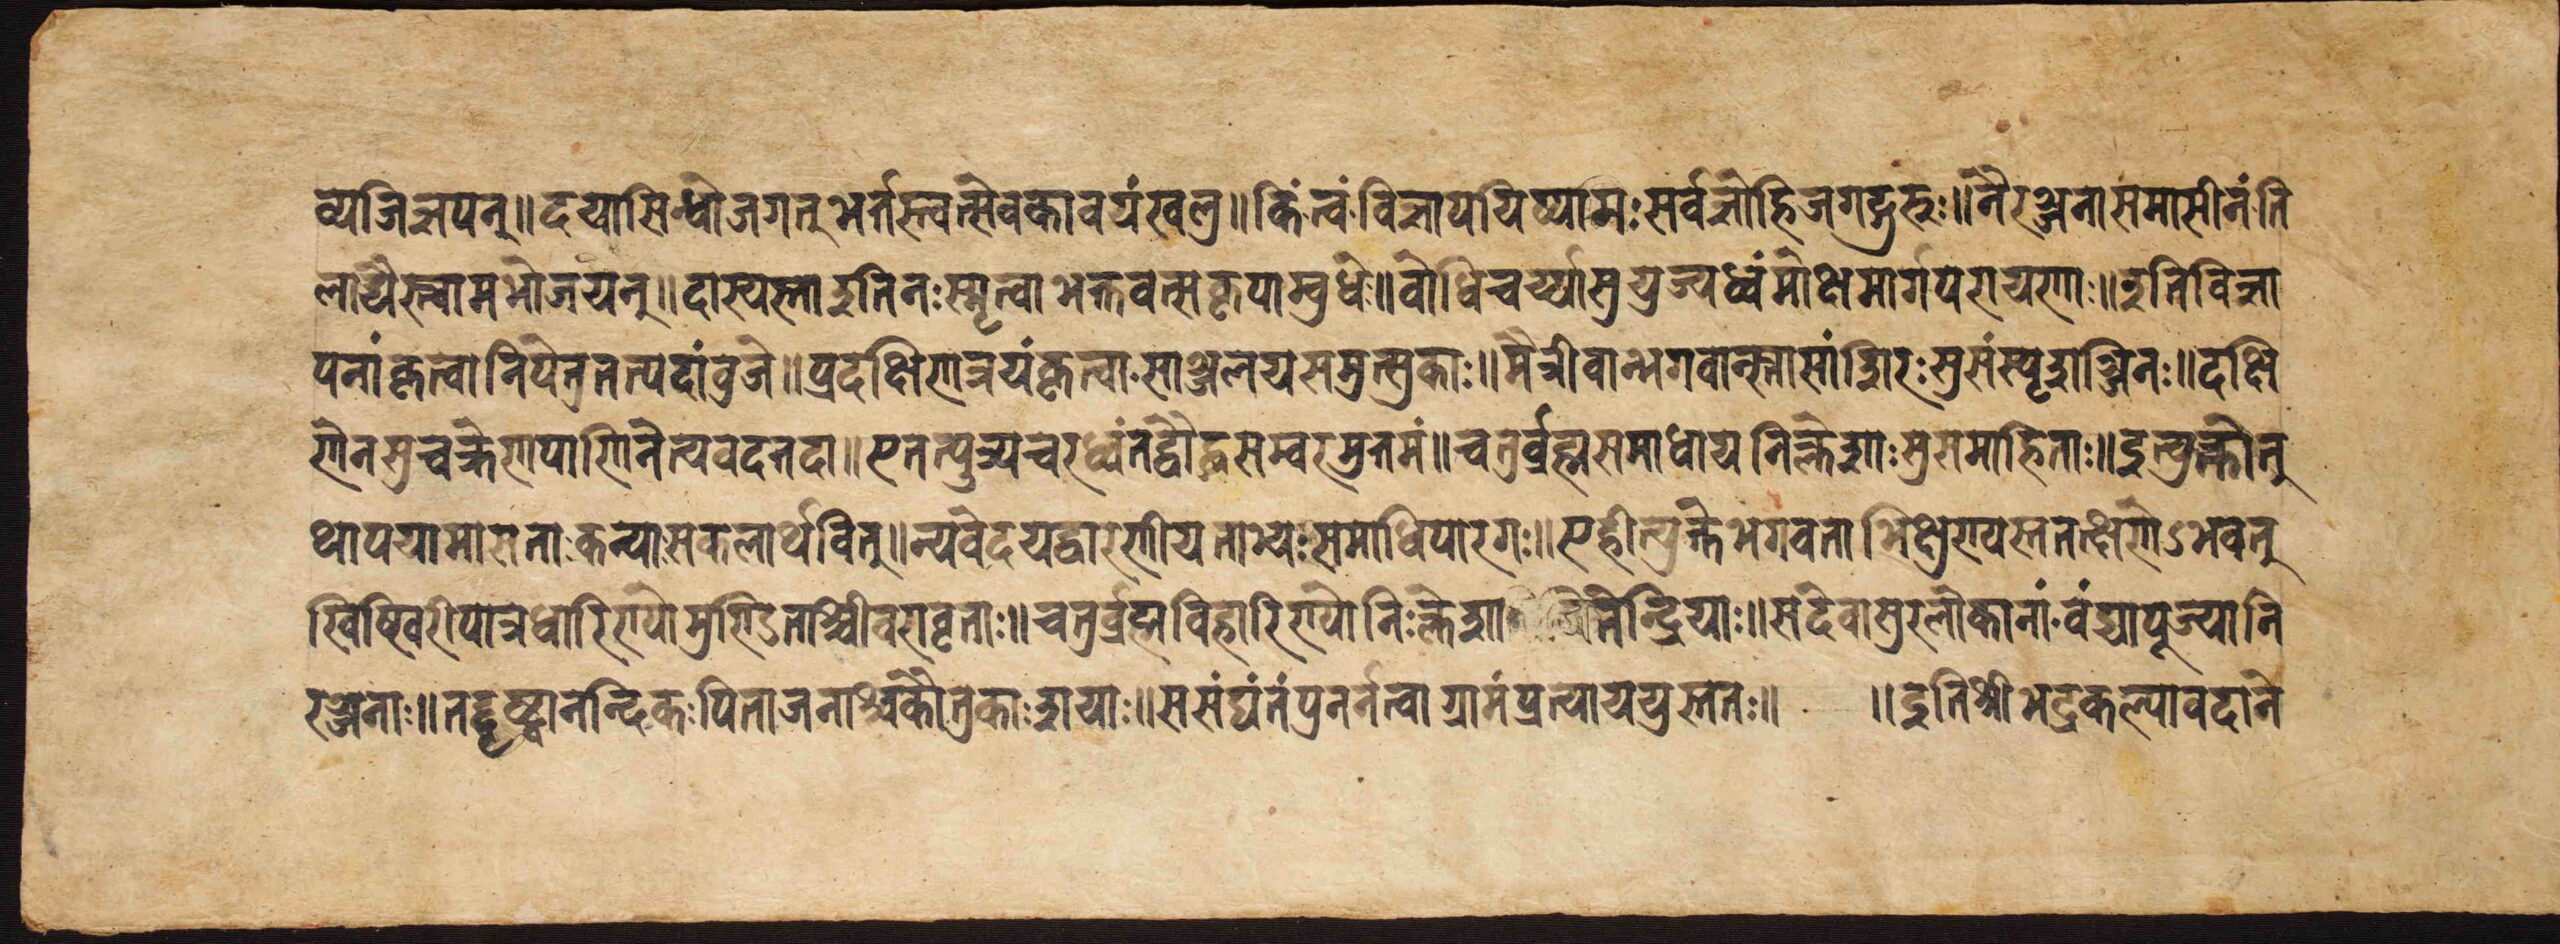 व्यजिज्ञपन्॥दयासिन्धोजगत्भर्त्तस्त्वत्सेवकावयंखलु॥किंत्वंविज्ञापयिष्यामिःसर्वज्ञोहिजगद्गुरुः॥नैरञ्जनासमासीनंति
लाद्यैस्त्वामभोजयन्॥दास्यस्ताइतिनःस्मृत्वाभक्तवत्सकृपाम्वुधे॥वोधिचर्य्यासुयुज्यध्वंमोक्षमार्गपरायणाः॥इतिविज्ञा
पनांकृत्वानिपेतुतत्पदांवुजे॥प्रदक्षिणात्रयंकृत्वासाञ्जलयसमुत्सुकाः॥मैत्रीवान्भगवान्स्तासांशिरःसुसंस्पृशञ्जिनः॥दक्षि
णेनसुचक्रेणपाणिनेत्यवदत्तदा॥एतत्पुज्यचरध्वंतद्वौद्धसम्वरमुत्तमं॥चतुर्व्रह्मसमाधायनिक्लेशाःसुसमाहिताः॥इत्युक्तोत्
थापयामासताःकन्याःसकलार्थवित्॥न्यवेदयद्वारणीयताभ्यःसमाधिपारगः॥एहीत्युक्तेभगवताभिक्षुण्यस्ततत्क्षणेऽभवत्
खिषिखरीपात्रधारिण्योमुण्डिताश्चीवरावृताः॥चतुर्व्रह्मविहारिण्योनिःक्लेशा जितेन्द्रियाः॥सदेवासुरलोकानांवंद्यापूज्यानि
रञ्जनाः॥तद्दृष्ट्वानन्दिकःपिताजनाश्चकौतुकाःशयाः॥ससंघंतंपुनर्नत्वाग्रामंप्रत्याययुस्ततः॥ ॥इतिश्रीभद्रकल्पावदाने